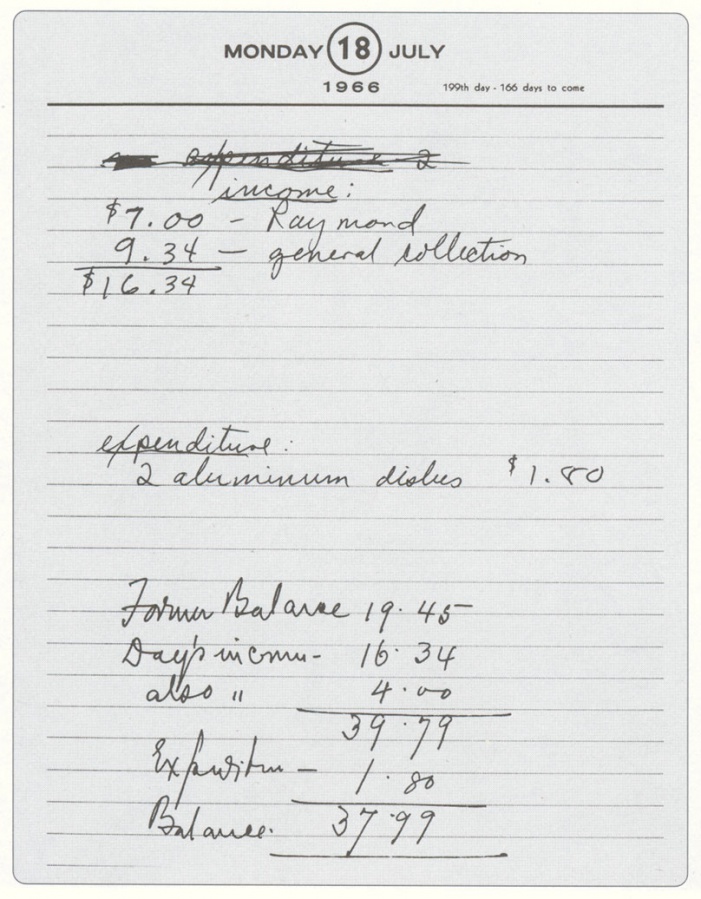 MONDAY 18 JULY
1966 199th day - 166 days to come
expenditure - 2
income:
$7.00 - Raymond
9.34 - general collection
$16.34
expenditure:
2 aluminum dishes $1.80
Former Balance 19.45
Day's income - 16.34
also " 4.00
39.79
Expenditure - 1.80
Balance. 37.99